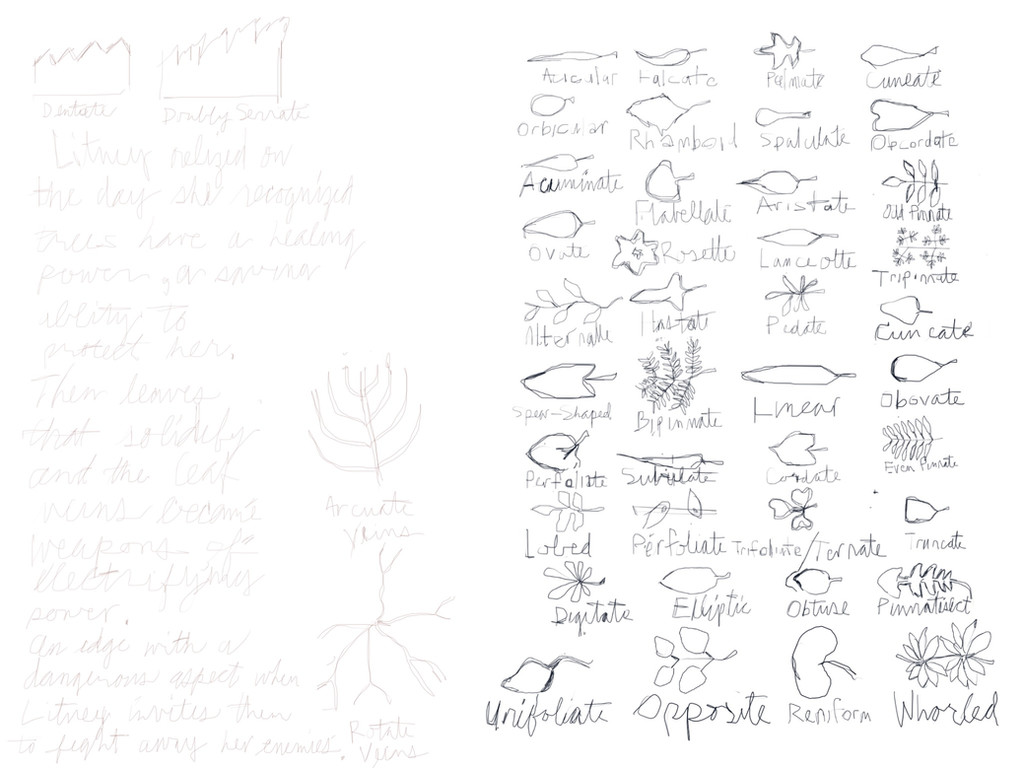 Dentate Doubly Serrate
Litney relized on
the day she recognized
trees have a healing
power, a saving
ability to
protect her.
Then leaves
that solidify
and the leaf
veins became
weapons of
electrifying
power.
an edge with a
dangerous aspect when
Litney invites them
to fight away her enemies.
Arcuate
Veins
Rotate
Veins
Acicular Falcate Palmate Cuneate
Orbicular Rhomboid Spatulate Obcordate
Acuminate Flabellate Aristate Odd Pinnate
Ovate Rosette Lanceolte Tripinnate
Alternate Hastate Pedate Cuncate
Spear-Shaped Bipinnate Linear Obovate
Perfoliate Subulate Cordate Even Pinnate
Lobed Perfoliate Trifoliate/Ternate Truncate
Digitate Elliptic Obtuse Pinnatisect
Unifoliate Opposite Reniform Whorled